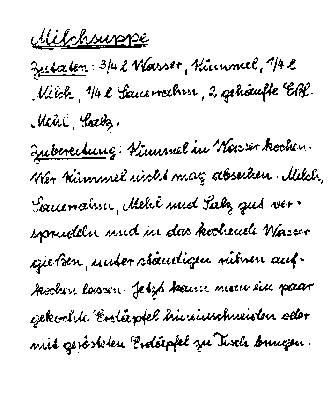 Milchsuppe
Zutaten: 3/4 l Wasser, Kümmel, 1/4 l
Milch, 1/4 l Sauerrahm, 2 gehäufte Eßl.
Mehl, Salz.
Zubereitung: Kümmel in Wasser kochen.
Wer Kümmel nicht mag abseihen. Milch,
Sauerrahm, Mehl und Salz gut ver-
sprudeln und in das kochende Wasser
gießen, unter ständigen rühren auf-
kochen lassen. Jetzt kann man ein paar
gekochte Erdäpfel hineinschneiden oder
mit gerösteten Erdäpfel zu Tisch bringen.